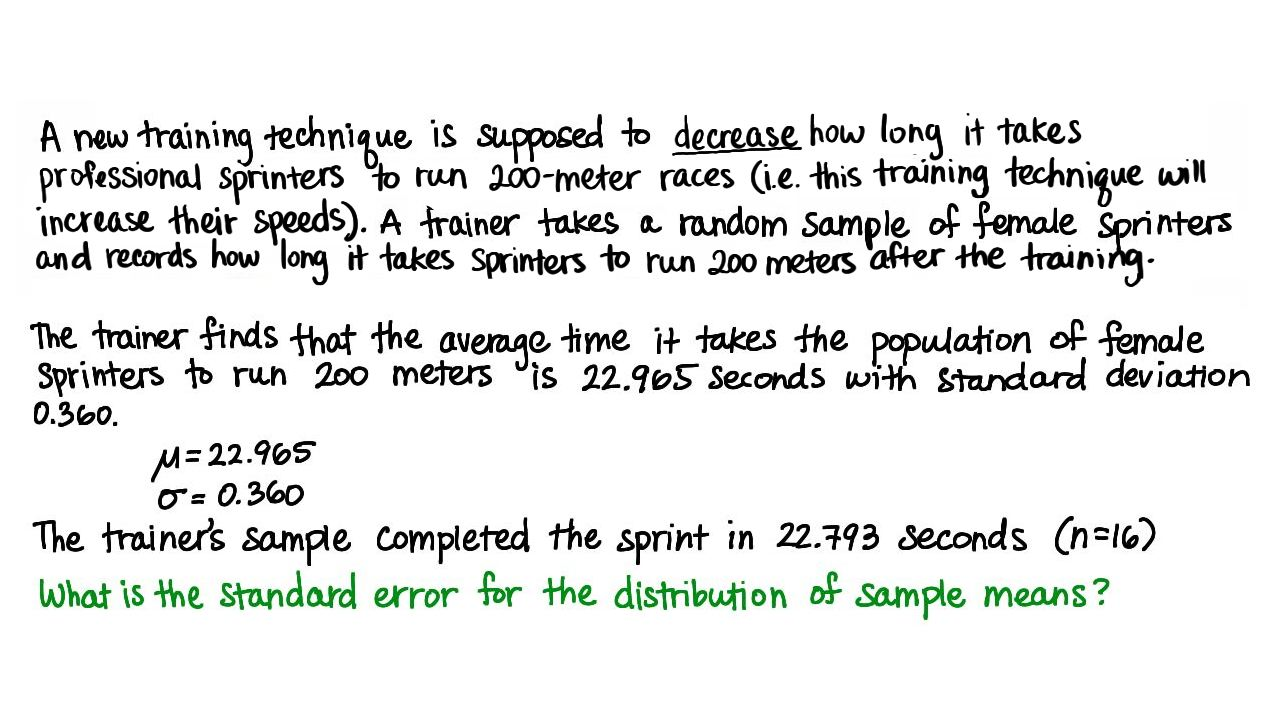 A new training technique is supposed to decrease how long it takes
professional sprinters to run 200-meter races (i.e. this training technique will
increase their speeds). A trainer takes a random sample of female sprinters
and records how long it takes sprinters to run 200 meters after the training.
The trainer finds that the average time it takes the population of female
sprinters to run 200 meters is 22.965 seconds with standard deviation
0.360.
μ = 22.965
σ = 0.360
The trainer's sample completed the sprint in 22.793 seconds (n=16)
What is the standard error for the distribution of sample means?